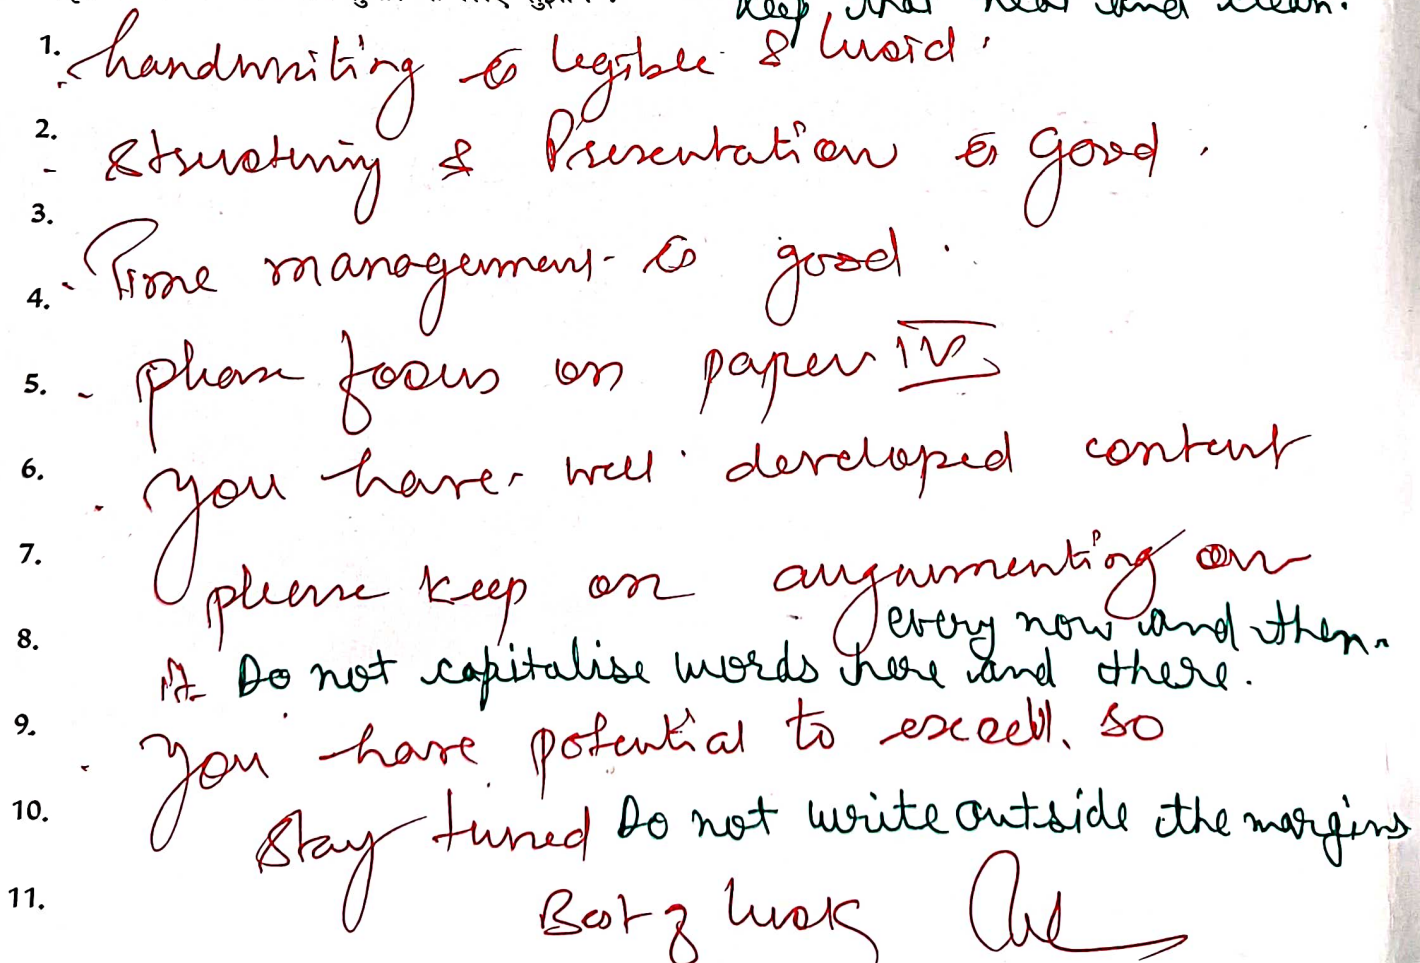 keep that neat and clean.
1. handwriting is legible & lucid.
2. Structuring & Presentation is good.
3.
4. Time management is good.
5. - please focus on paper IV
6. you have well developed content
7. please keep on augumenting on
8. every now and then.
it. Do not capitalise words here and there.
9. you have potential to excell, so
10. Stay tuned Do not write outside the margins
11. Best of luck